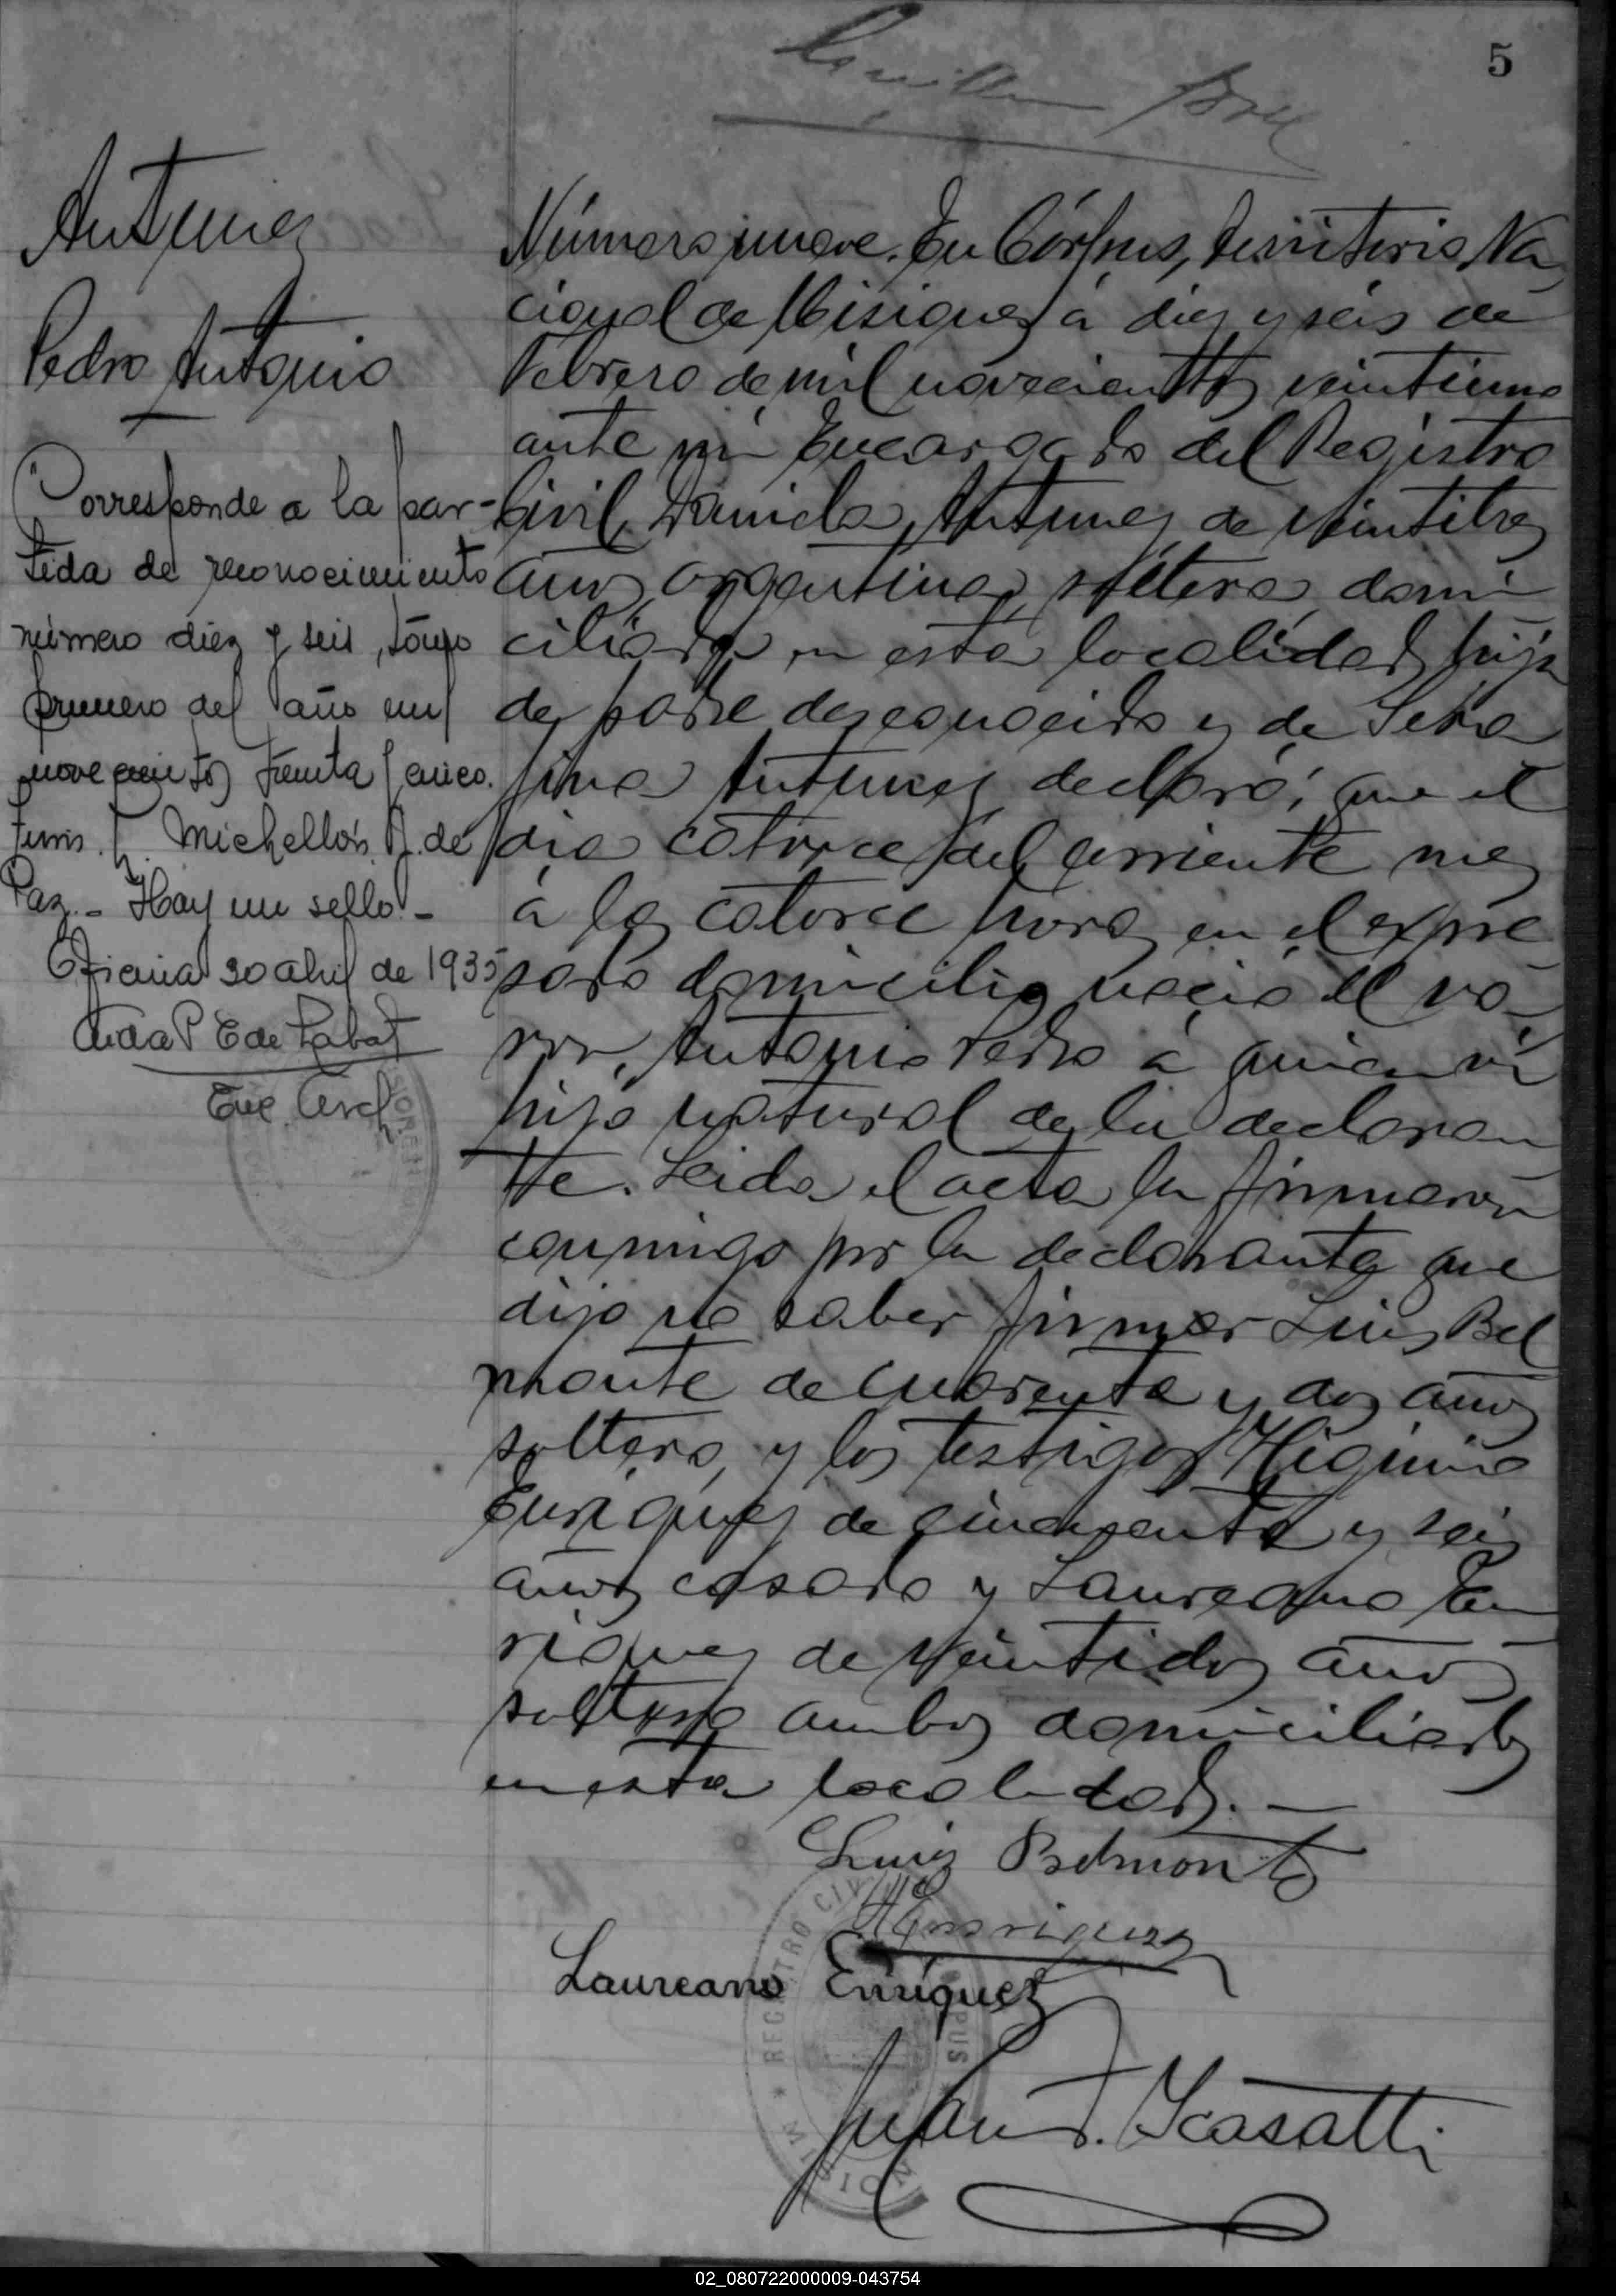 5
Antunez
Pedro Antonio
Corresponde a la par-
tida de reconocimiento
número diez y seis, tomo
primero del año mil
novecientos treinta y cinco.
Michellós. J. de
Paz. - Hay un sello. -
Oficina 30 abril de 1935
Aida P E de Labat
Enc. Arch.
Número nueve. En Córpus, territorio Na
cional de Misiones á diez y seis de
Febrero de mil novecientos veintiuno
ante mí Encargado del Registro
Civil, Daniela Antunez de veintitres
años, argentina, soltera, domi
ciliada en esta localidad, hija
de padre desconocido y de Sera
fina Antunez declaró: que el
dia catorce del corriente mes
á las catorce horas en el expre
sado domicilio nació el va
ron, Antonio Pedro á quien ví
hijo natural de la declaran
te. Leida el acta la firmaron
conmigo por la declarante que
dijo no saber firmar Luis Bel
monte de cuarenta y dos años
soltero, y los testigos Higinio
Enriquez de cincuenta y seis
años casado y Laureano En
riquez de veintidos años
soltero ambos domiciliados
en esta localidad. —
Luis Belmonte
HEnriquez
Laureano Enríquez
Juan F. Scasatti
REGISTRO CIVIL
02_080722000009-043754